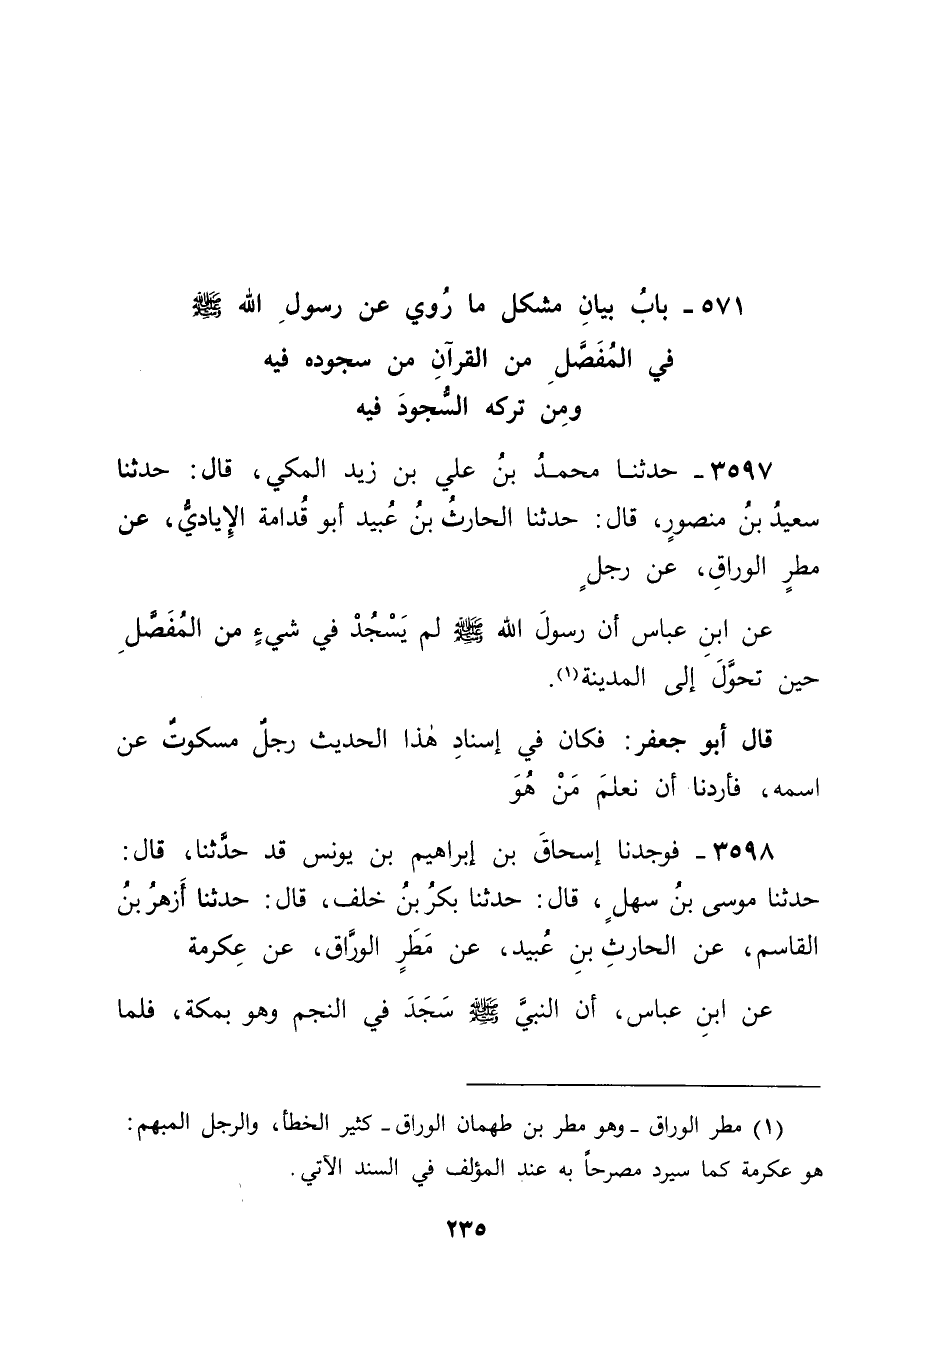 ٥٧١ ـ بابُ بيانِ مشكل ما رُوي عن رسولِ الله ﷺ
في المُفَصَّلِ من القرآنِ من سجوده فيه
ومِن تركه السُّجودَ فيه
٣٥٩٧ ـ حدثنـا محمـدُ بنُ علي بن زيد المكي، قال: حدثنا
سعيدُ بنُ منصورٍ، قال: حدثنا الحارثُ بنُ عُبيد أبو قُدامة الإِياديُّ، عن
مطرٍ الوراقِ، عن رجلٍ
عن ابنِ عباس أن رسولَ الله ﷺ لم يَسْجُدْ في شيءٍ من المُفَصَّلِ
حين تحوَّلَ إلى المدينة(١).
قال أبو جعفر: فكان في إسنادِ هٰذا الحديث رجلٌ مسكوتٌ عن
اسمه، فأردنا أن نعلمَ مَنْ هُوَ
٣٥٩٨ ـ فوجدنا إسحاقَ بن إبراهيم بن يونس قد حدَّثنا، قال:
حدثنا موسى بنُ سهلٍ، قال: حدثنا بكرُ بنُ خلف، قال: حدثنا أَزهرُ بنُ
القاسم، عن الحارثِ بنِ عُبيد، عن مَطَرٍ الورَّاق، عن عِكرمة
عن ابنِ عباس، أن النبيَّ ﷺ سَجَدَ في النجم وهو بمكة، فلما
(١) مطر الوراق ـ وهو مطر بن طهمان الوراق ـ كثير الخطأ، والرجل المبهم:
هو عكرمة كما سيرد مصرحاً به عند المؤلف في السند الآتي.
٢٣٥